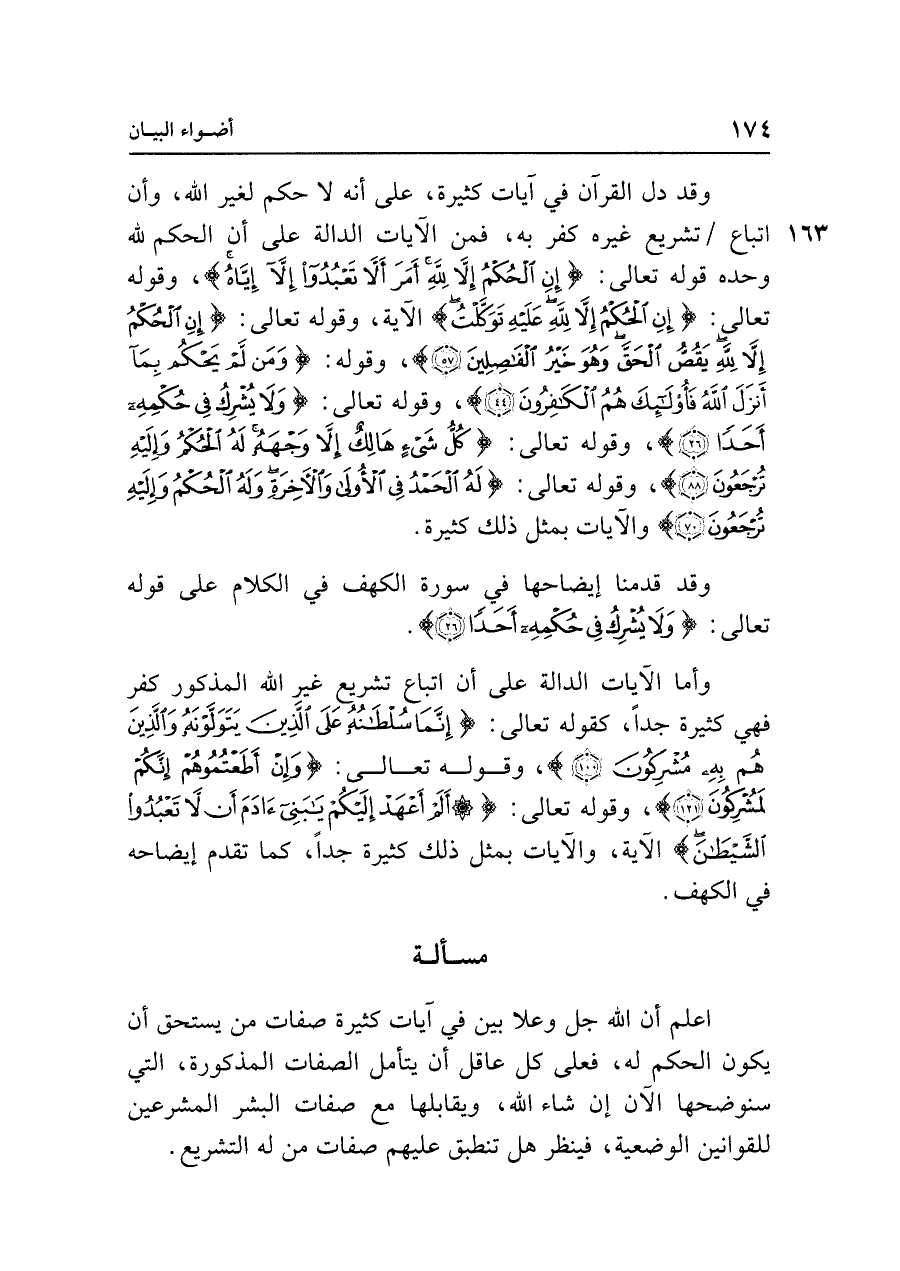 ١٧٤ أضـواء البيـان
وقد دل القرآن في آيات كثيرة، على أنه لا حكم لغير الله، وأن
١٦٣ اتباع / تشريع غيره كفر به، فمن الآيات الدالة على أن الحكم لله
وحده قوله تعالى: ﴿ إِنِ ٱلْحُكْمُ إِلَّا لِلَّهِ ۚ أَمَرَ أَلَّا تَعْبُدُوٓا۟ إِلَّآ إِيَّاهُ ۚ ﴾، وقوله
تعالى: ﴿ إِنِ ٱلْحُكْمُ إِلَّا لِلَّهِ ۖ عَلَيْهِ تَوَكَّلْتُ ۖ ﴾ الآية، وقوله تعالى: ﴿ إِنِ ٱلْحُكْمُ
إِلَّا لِلَّهِ ۖ يَقُصُّ ٱلْحَقَّ ۖ وَهُوَ خَيْرُ ٱلْفَـٰصِلِينَ ٥٧ ﴾، وقوله: ﴿ وَمَن لَّمْ يَحْكُم بِمَآ
أَنزَلَ ٱللَّهُ فَأُو۟لَـٰٓئِكَ هُمُ ٱلْكَـٰفِرُونَ ٤٤ ﴾، وقوله تعالى: ﴿ وَلَا يُشْرِكُ فِى حُكْمِهِۦٓ
أَحَدًا ٢٦ ﴾، وقوله تعالى: ﴿ كُلُّ شَىْءٍ هَالِكٌ إِلَّا وَجْهَهُۥ ۚ لَهُ ٱلْحُكْمُ وَإِلَيْهِ
تُرْجَعُونَ ٨٨ ﴾، وقوله تعالى: ﴿ لَهُ ٱلْحَمْدُ فِى ٱلْأُولَىٰ وَٱلْـَٔاخِرَةِ ۖ وَلَهُ ٱلْحُكْمُ وَإِلَيْهِ
تُرْجَعُونَ ٧٠ ﴾ والآيات بمثل ذلك كثيرة.
وقد قدمنا إيضاحها في سورة الكهف في الكلام على قوله
تعالى: ﴿ وَلَا يُشْرِكُ فِى حُكْمِهِۦٓ أَحَدًا ٢٦ ﴾.
وأما الآيات الدالة على أن اتباع تشريع غير الله المذكور كفر
فهي كثيرة جداً، كقوله تعالى: ﴿ إِنَّمَا سُلْطَـٰنُهُۥ عَلَى ٱلَّذِينَ يَتَوَلَّوْنَهُۥ وَٱلَّذِينَ
هُم بِهِۦ مُشْرِكُونَ ١٠٠ ﴾، وقـولـه تعـالـى: ﴿ وَإِنْ أَطَعْتُمُوهُمْ إِنَّكُمْ
لَمُشْرِكُونَ ١٢١ ﴾، وقوله تعالى: ﴿ ۞ أَلَمْ أَعْهَدْ إِلَيْكُمْ يَـٰبَنِىٓ ءَادَمَ أَن لَّا تَعْبُدُوا۟
ٱلشَّيْطَـٰنَ ۖ ﴾ الآية، والآيات بمثل ذلك كثيرة جداً، كما تقدم إيضاحه
في الكهف.
مسـألـة
اعلم أن الله جل وعلا بين في آيات كثيرة صفات من يستحق أن
يكون الحكم له، فعلى كل عاقل أن يتأمل الصفات المذكورة، التي
سنوضحها الآن إن شاء الله، ويقابلها مع صفات البشر المشرعين
للقوانين الوضعية، فينظر هل تنطبق عليهم صفات من له التشريع.